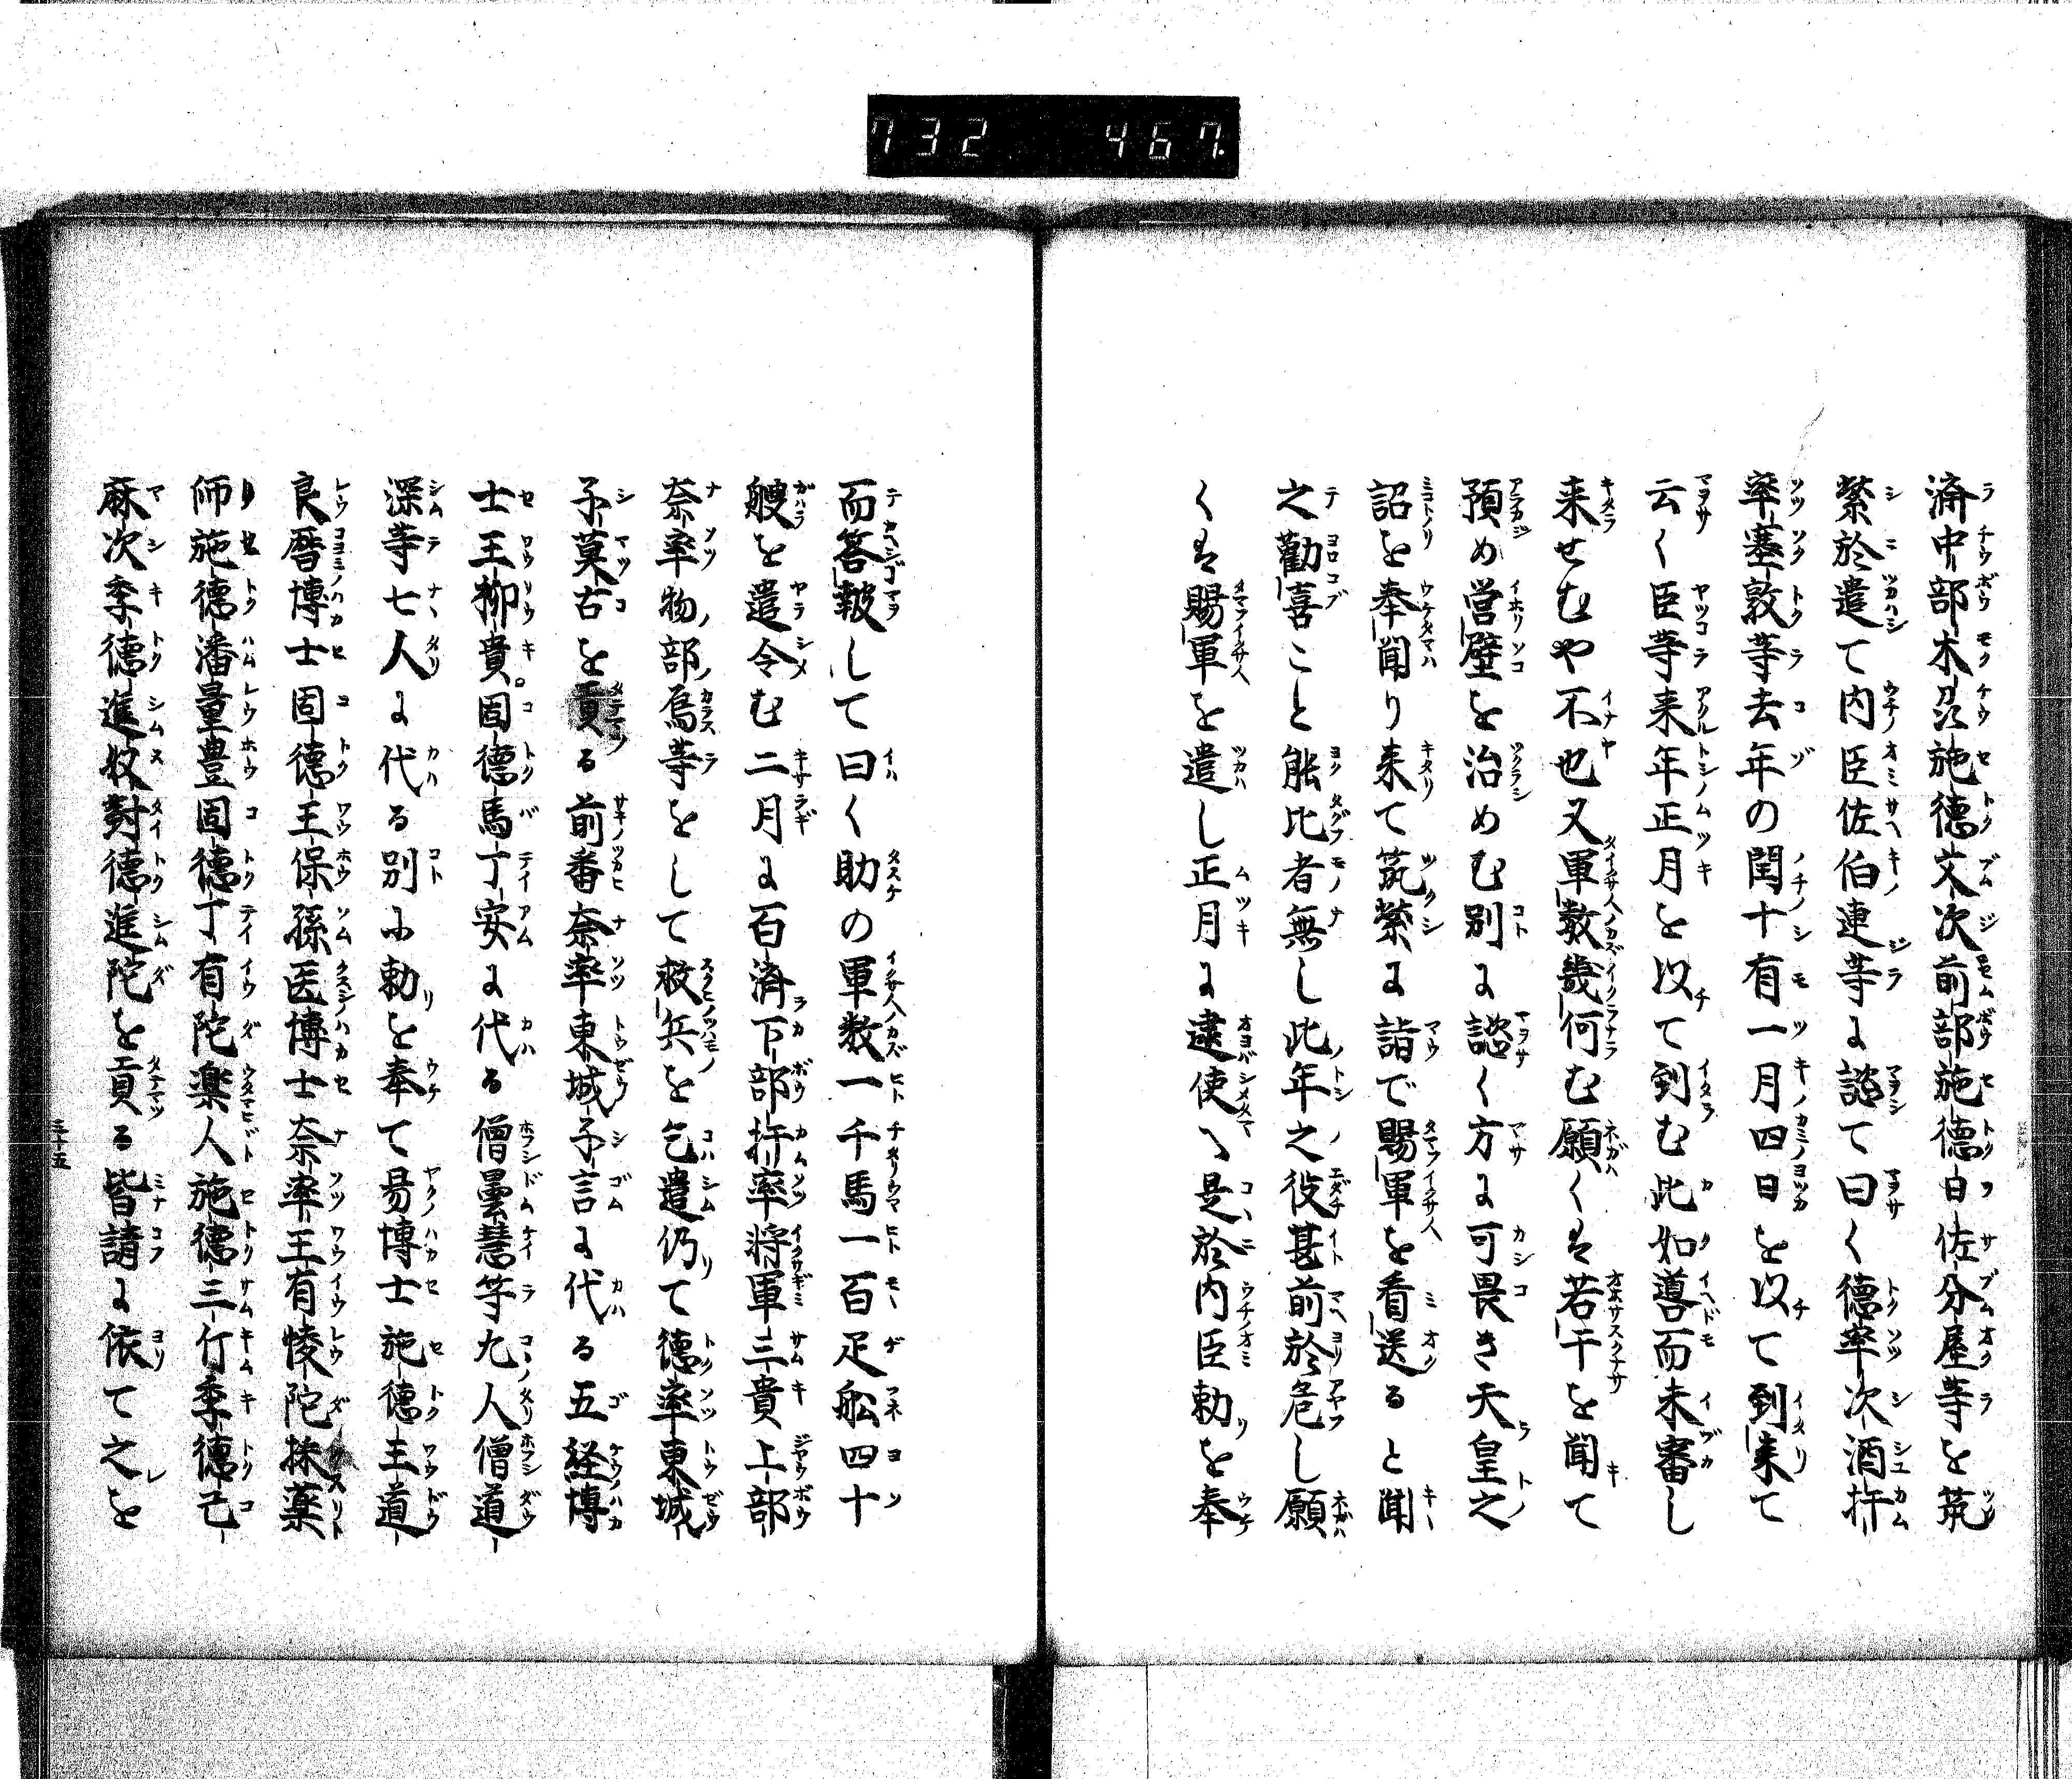 732 467.
済中部木刕施徳文次前部施徳曰佐分屋等を筑
紫於遣て内臣佐伯連等に諮て曰く徳率次酒扞
率塞敦等去年の閏十有一月四日を以て到来て
云く臣等来年正月を以て到む此如噵而未審し
来せむや不也又軍数幾何む願くは若干を聞て
預め営壁を治めむ別に諮く方に可畏き天皇之
詔を奉聞り来て筑紫に詣で賜軍を看送ると聞
之歓喜こと能比者無し此年之役甚前於危し願
くは賜軍を遣し正月に逮使へ是於内臣勅を奉
而答報して曰く助の軍数一千馬一百疋舩四十
艘を遣令む二月に百済下部扞率将軍三貴上部
奈率物部烏等をして救兵を乞遣仍て徳率東城
子莫古を貢る前番奈率東城子言に代る五経博
士王柳貴固徳馬丁安に代る僧曇慧等九人僧道
深等七人に代る別に勅を奉て易博士施徳王道
良暦博士固徳王保孫医博士奈率王有㥄陀採薬
師施徳潘量豊固徳丁有陀楽人施徳三斤季徳己
麻次季徳進奴対徳進陀を貢る皆請に依て之を
三十五